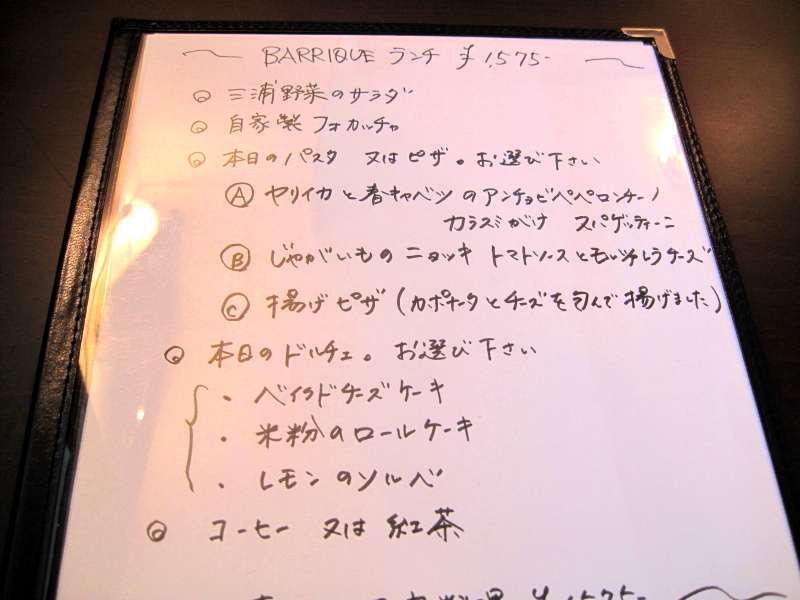 BARRIQUE ランチ ¥1,575-
◎ 三浦野菜のサラダ
◎ 自家製 フォカッチャ
◎ 本日のパスタ 又は ピザ。お選び下さい
Ⓐ ヤリイカと春キャベツのアンチョビペペロンチーノ
カラスミがけ スパゲッティーニ
Ⓑ じゃがいものニョッキ トマトソースとモッツァレラチーズ
Ⓒ 揚げピザ (カポナータとチーズを包んで揚げました)
◎ 本日のドルチェ。お選び下さい
・ ベイクドチーズケーキ
・ 米粉のロールケーキ
・ レモンのソルベ
◎ コーヒー 又は 紅茶
¥1,575-